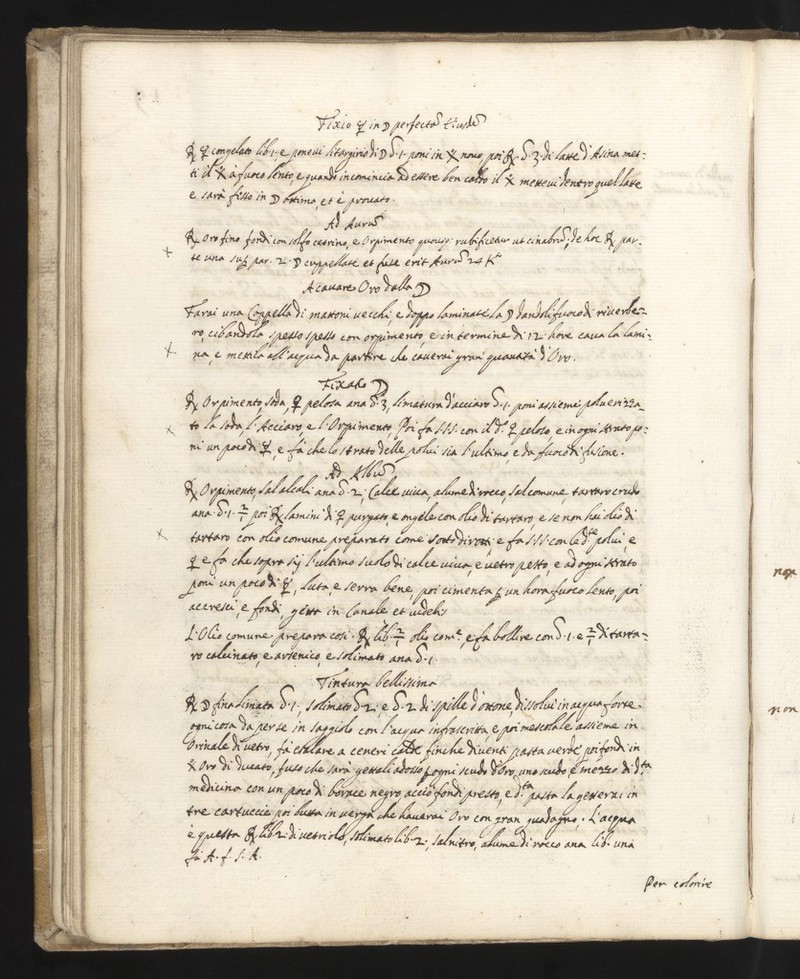 Fixio ☿ in ☽ perfectã Eiusdẽ
℞ ☿ congelato lib. 1. e ponevi litargirio di ☽ ℥. 1. poni in 🝧 novo, poi ℞ ℥. 3. di latte d'Asina met:
ti il 🝧 à fuoco lento, e quando incomincia ad essere ben caldo il 🝧 mettevi dentro quel latte
e sarà fisso in ☽ ottima, et è provato.
Ad Aurũ
℞ Oro fino fondi con solfo cetrino, e Orpimento quousq; rubificetur ut cinabriũ; de hoc ℞ par.
te una sup par. 2. ☽ cuppellate et fuse erit Aurũ 24 Kti
A cavare Oro dalla ☽
Farai una Coppella di mattoni vecchi, e doppo laminate la ☽ dandoli fuoco di riverbe=
ro, cibandola spesso spesso con orpimento, e in termine di 12 hore cava la lami:
na, e mettila all'acqua da partire che caverai gran quantità d'Oro.
Fixatio ☽
℞ Orpimento, soda, ♀ pelosa ana ℥. 3, limatura d'acciaro ℥. 1. poni assieme polveriza=
to la soda, l'Acciaro, e l'Orpimento, Poi fa SSS. con il d.º ♀ peloso, e in ogni strato po:
ni un poco di ☿, e fà che lo strato delle polvi sia l'ultimo, e da fuoco di fusione.
Ad Albũ
℞ Orpimento, Sal alcali ana ℥. 2, Calce viva, alume di rocco, Sal comune, tartaro crudo
ana ℥. 1. 2/1 poi ℞ lamini di ♀ purgato, e ongele con olio di tartaro, e se non hai olio di
tartaro con olio comune preparato come sotto dirotti; e fa SSS. con le d.te polvi, e
♀ e fa che sopra sij l'ultimo suolo di calce viva, e vetro pesto, e ad ogni strato
poni un poco di ☿, luta, e serra bene, poi cimenta p un hora fuoco lento, poi
accresci, e fondi, getta in Canale et videbis
L'Olio comune prepara cosi. ℞ lib. 2/1 olio com.e, e fa bollire con ℥. 1. e 2/1 di tarta=
ro calcinato, e arsenico, e solimato ana ℥. 1.
Tintura bellissima
℞ ☽ fina limata ℥. 1., solimato ℥. 2, e ℥. 2. di spille d'ottone, dissolvi in acqua forte
ogni cosa da per se in saggiolo con l'acqua infrascrita, e poi mescolale assieme in
Orinale di vetro, fà exalare a ceneri calde, finche diventi pasta verde, poi fondi in
🝧 Oro di Ducato, fuso che sarà gettali adosso p ogni scudo d'Oro, uno scudo e mezzo di d.ta
medicina con un poco di borace negro acciò fondi presto, e d.ta pasta la getterai in
tre cartuccie poi butta in verga che haverai Oro con gran guadagno. L'acqua
è questa ℞ lib. 2. di vetriolo, solimato lib. 2, Salnitro, alume di rocco ana lib. una
fà A. f. S. A.
Per colorire
non